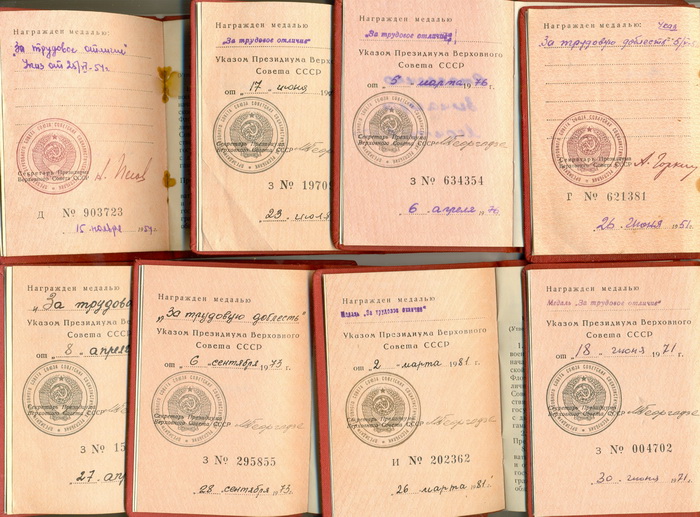 Награжден медалью
За трудовое отличие
Указ от
Секретарь Президиума
Верховного Совета СССР
Д № 903723
15 ноября 1954г.
Награжден медалью
„За трудовое отличие"
Указом Президиума Верх
Совета СССР
от „ 17 " июня 19
Секретарь Президиума
Верховного Совета СССР
З № 1970
„23" июля
Награжден медалью
„За трудовое отличие"
Указом Президиума Верховного
Совета СССР
от „ 5 " марта 1976 г.
Секретарь Президиума
Верховного Совета СССР
З № 634354
„6" апреля 1976
Награжден медалью:
За трудовую доблесть
Секретарь Президиума
Верховного Совета СССР
А. Горкин
Г № 621381
26 июня 1951
Награжден медалью
„За трудов
Указом Президиума Верх
Совета СССР
от „ 8 " апреля
Секретарь Президиума
Верховного Совета СССР
З № 15
„27" ап
Награжден медалью
„За трудовую доблесть"
Указом Президиума Верховного
Совета СССР
от „ 6 " сентября 1973 г.
Секретарь Президиума
Верховного Совета СССР
З № 295855
„28" сентября 1973
Награжден медалью
Медаль „За трудовое отличие"
Указом Президиума Верховного
Совета СССР
от „ 2 " марта 1981 г.
Секретарь Президиума
Верховного Совета СССР
И № 202362
„26" марта 1981 г.
Награжден медалью
Медаль „За трудовое отличие"
Указом Президиума Верховного
Совета СССР
от „ 18 " июня 1971 г.
Секретарь Президиума
Верховного Совета СССР
З № 004702
„30" июня 1971